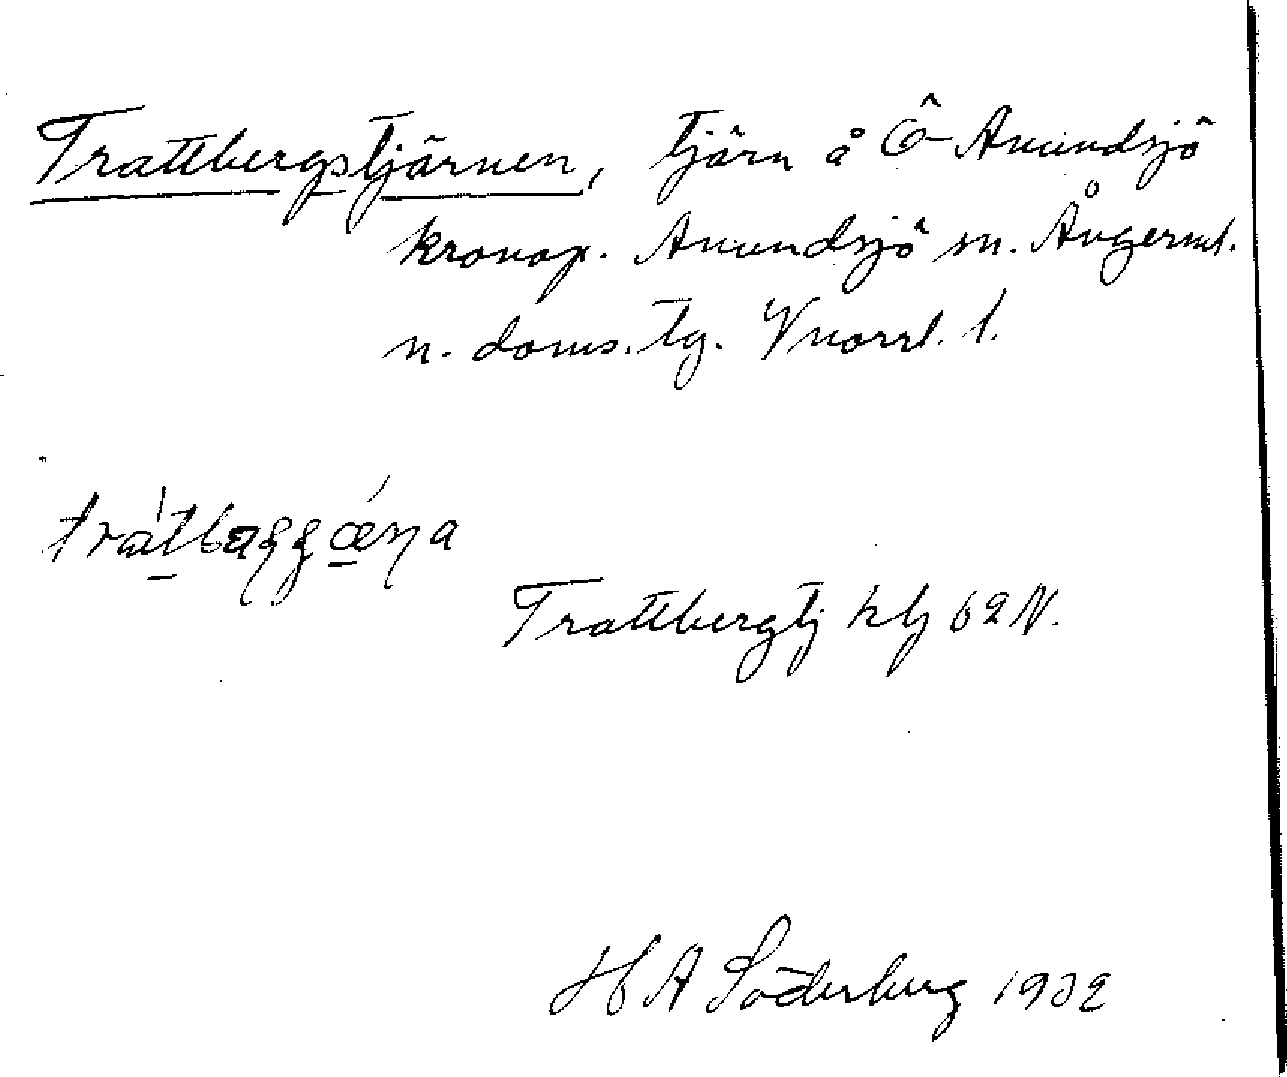 Trattbergstjärnen, tjärn å Ö-Anundsjö
kronop. Anundsjö sn. Ångerml.
n. doms. tg. Vnorrl. l.
Trattbergtj ktj 62 N.
H A Söderberg 1932